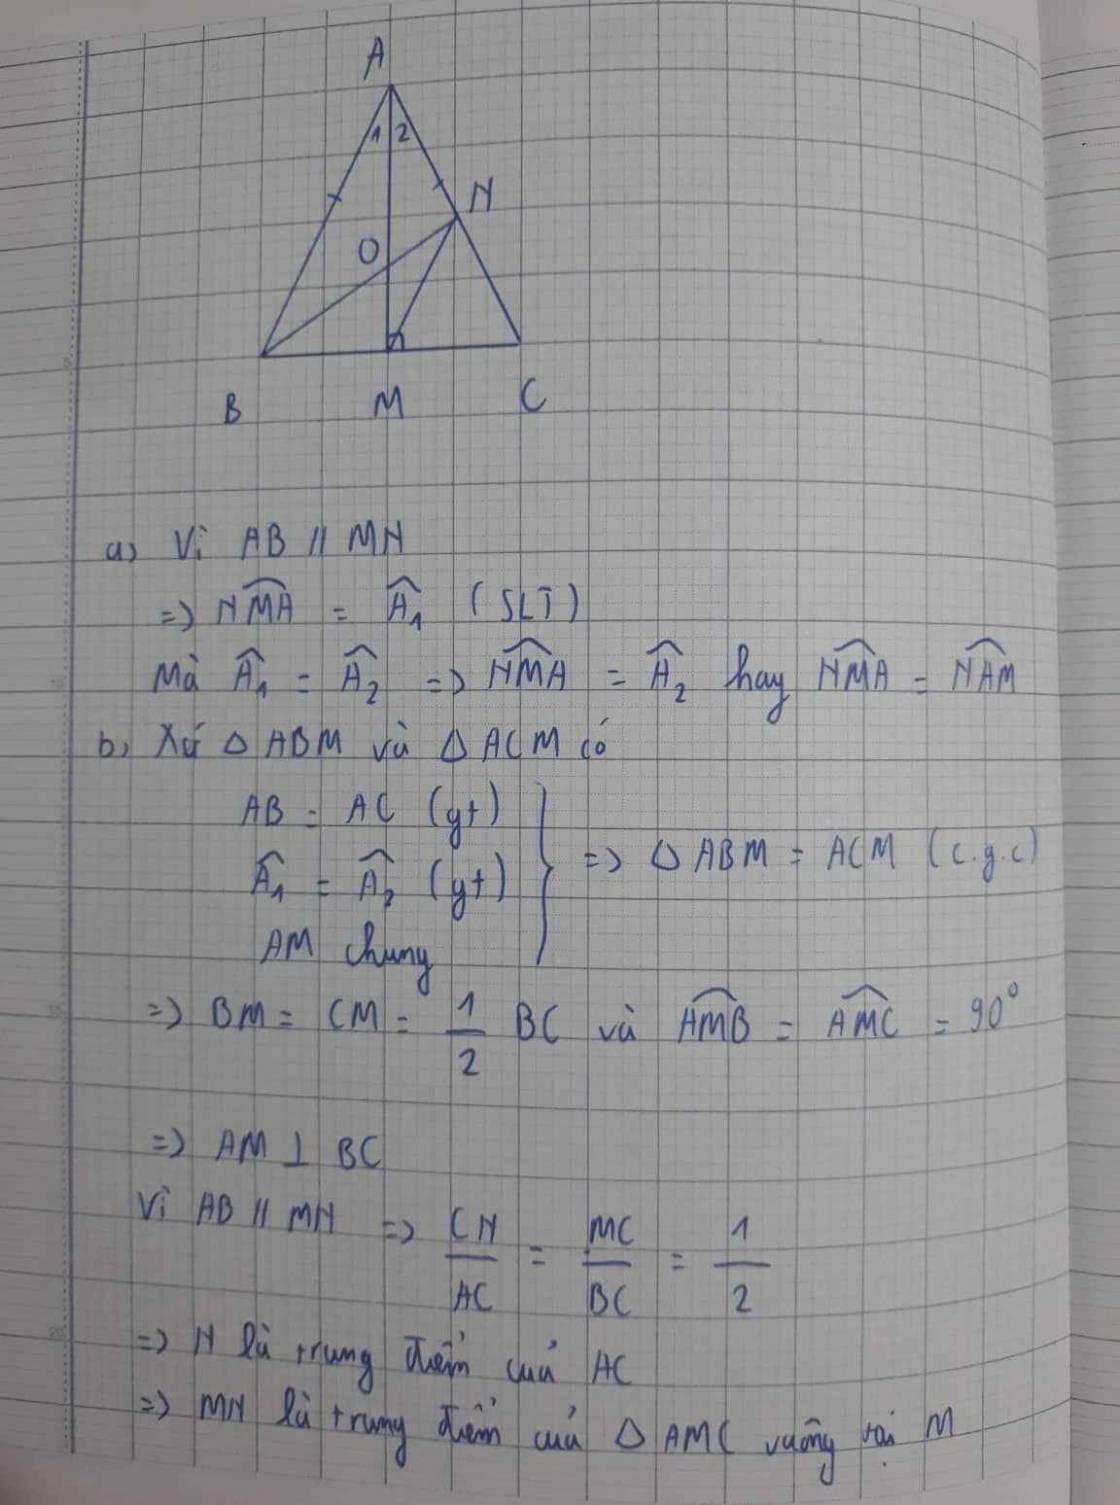 A
1 2
N
O
B M C
a) Vì AB // MN
=> NMA = A₁ (SLT)
Mà A₁ = A₂ => NMA = A₂ hay NMA = NAM
b) Xét △ ABM và △ ACM có
AB = AC (gt)
A₁ = A₂ (gt) } => △ ABM = ACM (c.g.c)
AM chung
=> BM = CM = 1/2 BC và AMB = AMC = 90°
=> AM ⊥ BC
Vì AB // MN => CN/AC = MC/BC = 1/2
=> N là trung điểm của AC
=> MN là trung điểm của △ AMC vuông tại M